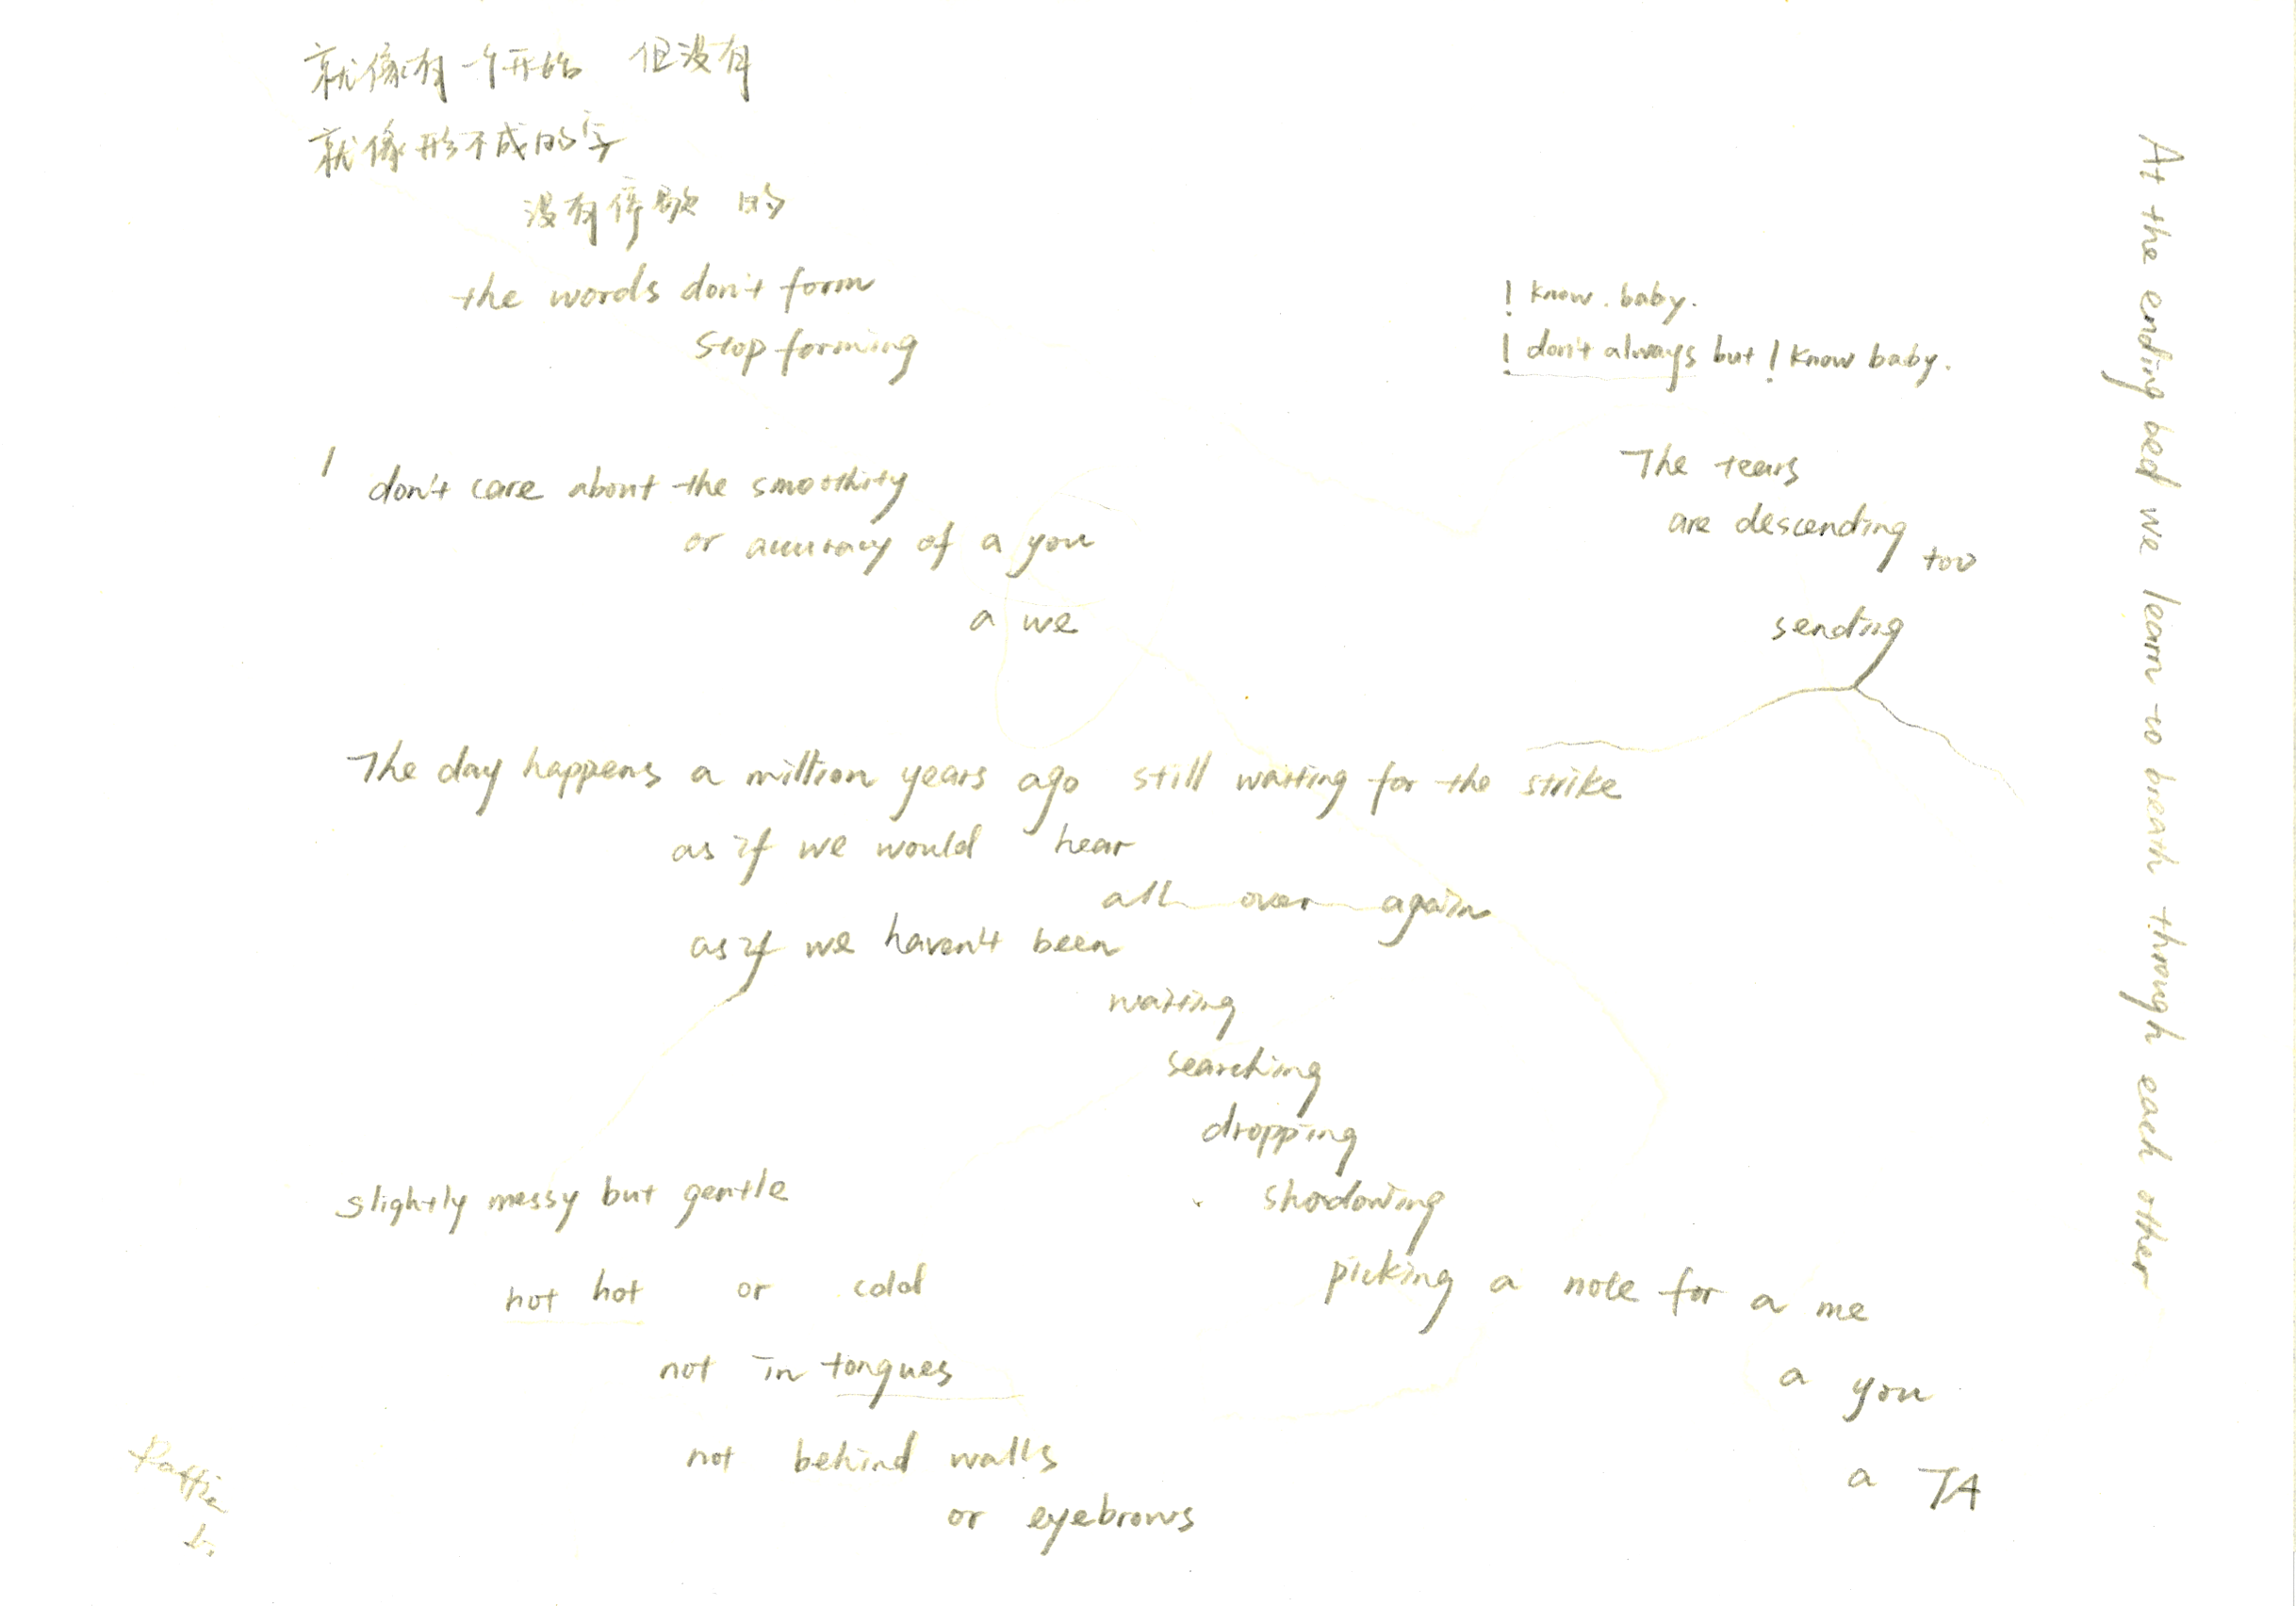 就像有一个开始 但没有
就像形不成的字
没有停歇 的
the words don't form
stop forming
I don't care about the smoothity
or accuracy of a you
a we
I know. baby.
I don't always but I know baby.
The tears
are descending too
sending
The day happens a million years ago still waiting for the strike
as if we would hear
all over again
as if we haven't been
waiting
searching
dropping
shadowing
picking a note for a me
a you
a TA
slightly messy but gentle
not hot or cold
not in tongues
not behind walls
or eyebrows
At the ending bed we learn to breath through each other